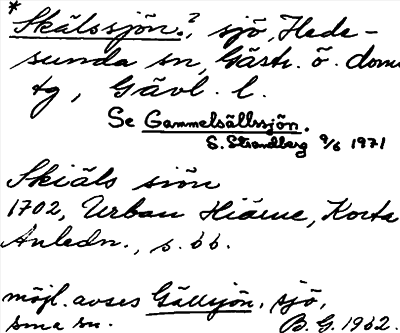 *Skälssjön?, sjö, Hede-
sunda sn, Gästr. ö. doms
tg, Gävl. l.
Se Gammelsällssjön.
S. Strandberg 9/6 1971
Skiäls siön
1702, Urban Hiärne, Korta
Anledn., s. 66.
möjl. avses Gällsjön, sjö,
sma sn. B.G. 1962.